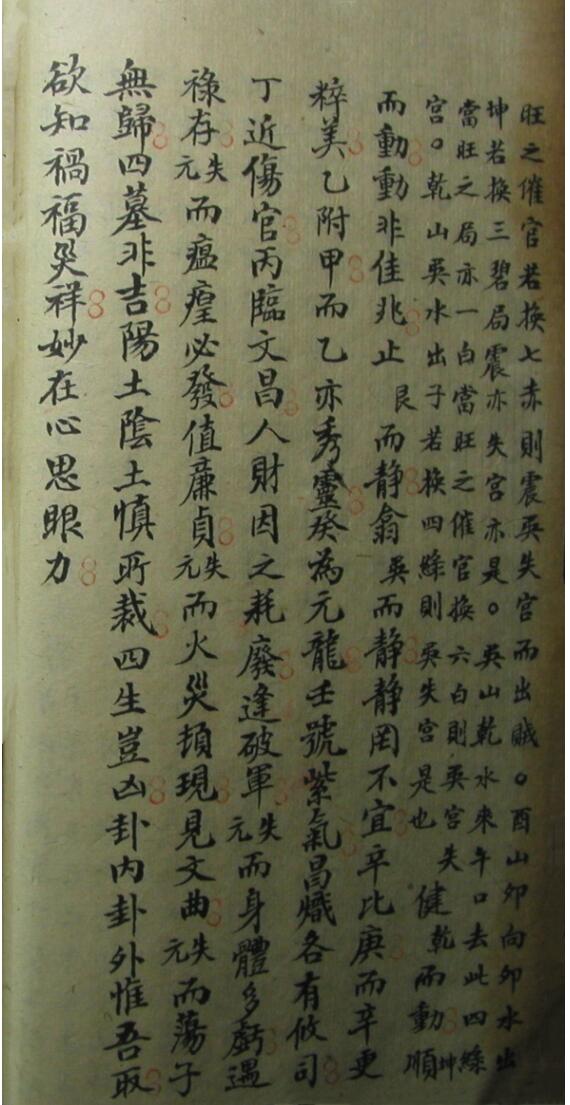 旺之催官若換七赤則震巽失宮而出賊。酉山卯向卯水出
坤若換三碧局震亦失宮亦是。巽山乾水來午口去此四綠
當旺之局亦一白當旺之催官換六白則巽宮失
宮。乾山巽水出子若換四綠則巽失宮是也健乾而動順坤
而動動非佳兆止艮而静翕巽而静静罔不宜辛比庚而辛更
粹美乙附甲而乙亦秀靈癸為元龍壬號紫氣昌熾各有攸司
丁近傷官丙臨文昌人財因之耗廢逢破軍失元而身體多虧遇
祿存失元而瘟瘽必發值廉貞失元而火災頓現見文曲失元而蕩子
無歸四墓非吉陽土陰土慎所裁四生豈凶卦内卦外惟吾取
欲知禍福災祥妙在心思眼力